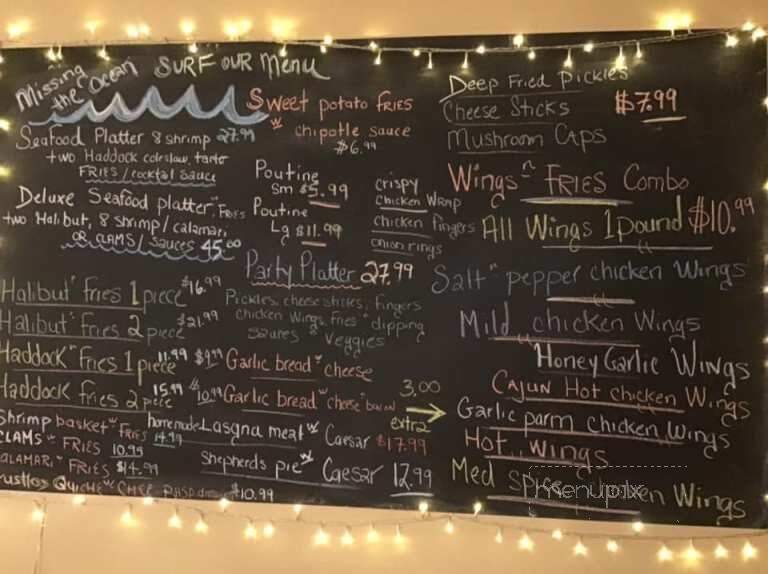 Missing
the Ocean
SURF OUR Menu
Seafood Platter 8 shrimp 27.99
two Haddock coleslaw, tarter
FRIES/cocktail sauce
Deluxe Seafood platter w FRIES
two Halibut, 8 shrimp/calamari
OR CLAMS/ sauces 45.00
Halibut w Fries 1 piece $16.99
Halibut w Fries 2 piece $21.99
Haddock w Fries 1 piece 11.99
Haddock w Fries 2 piece 15.99
Shrimp basket w FRIES 14.99
CLAMS w FRIES 10.99
CALAMARI w FRIES $14.99
Crustless Quiche w $10.99
Sweet potato FRIES
w chipotle sauce
$6.99
Poutine
Sm $5.99
Poutine
Lg $11.99
crispy
chicken wrap
chicken fingers
onion rings
Party Platter 27.99
Pickles, cheese sticks, fingers
chicken wings, fries w dipping
sauces w veggies
$9.99 Garlic bread w cheese
$10.99 Garlic bread w cheese bacon
homemade Lasgna meat w Caesar $17.99
Shepherds pie w Caesar 12.99
Deep Fried Pickles
Cheese Sticks $7.99
Mushroom Caps
Wings n FRIES Combo
All Wings 1 Pound $10.99
Salt n pepper chicken Wings
Mild chicken Wings
Honey Garlic Wings
CAJUN Hot chicken Wings
3.00
extra
Garlic parm chicken Wings
Hot wings
Med chicken Wings
menupix